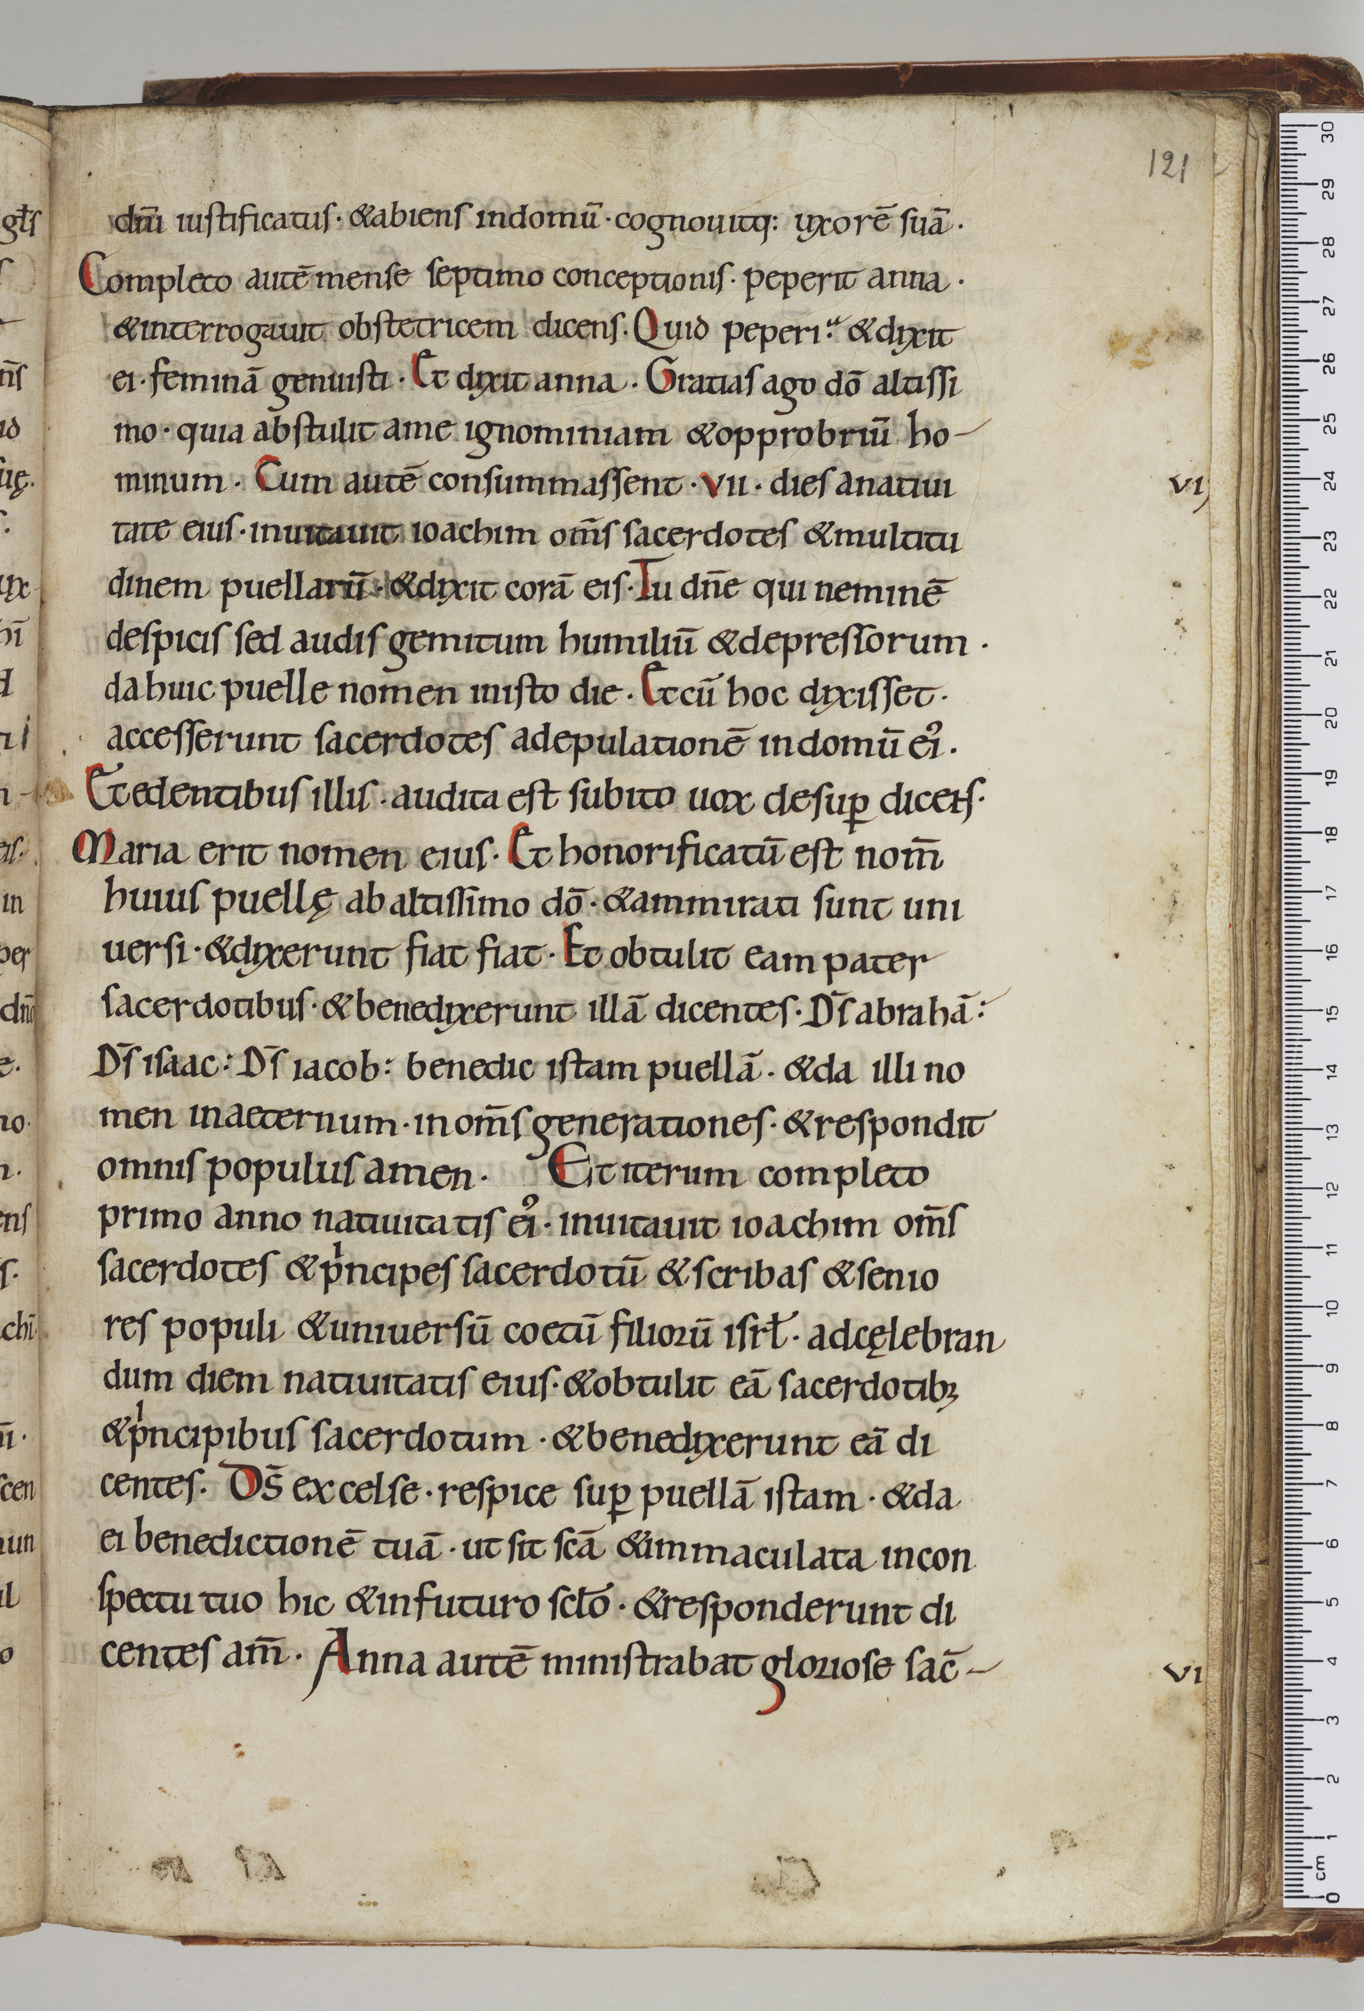 121
dnī iustificatus · & abiens in domū · cognouitq: uxorē suā ·
Completo autē mense septimo conceptionis · peperit anna ·
& interrogauit obstetricem dicens · Quid peperi? & dixit
ei · feminā genuisti · Et dixit anna · Gratias ago dō altissi
mo · quia abstulit a me ignominiam & opprobriū ho-
minum · Cum autē consummassent · vii · dies a natiui
vi
tate eius · inuitauit ioachim om̄s sacerdotes & multitu
dinem puellarū · & dixit corā eis · Tu dn̄e qui neminē
despicis sed audis gemitum humiliū & depressorum ·
da huic puelle nomen in isto die · Et cū hoc dixisset ·
accesserunt sacerdotes ad epulationē in domū ei᾿ ·
Et edentibus illis · audita est subito uox desup̱ dicens ·
Maria erit nomen eius · Et honorificatū est nom̄
huius puellę ab altissimo dō · & ammirati sunt uni
uersi · & dixerunt fiat fiat · Et obtulit eam pater
sacerdotibus · & benedixerunt illā dicentes · Ds̄ abrahā :
Ds̄ isaac : Ds̄ iacob : benedic istam puellā · & da illi no
men in aeternum · in om̄s generationes · & respondit
omnis populus amen · Et iterum completo
primo anno natiuitatis ei᾿ · inuitauit ioachim om̄s
sacerdotes & pⁱncipes sacerdotū & scribas & senio
res populi & uniuersū coetū filiorū isrł · ad cęlebran
dum diem natiuitatis eius · & obtulit eā sacerdotibꝫ
& pⁱncipibus sacerdotum · & benedixerunt eā di
centes · Ds̄ excelse · respice sup̱ puellā istam · & da
ei benedictionē tuā · ut sit scā & immaculata in con
spectu tuo hic & in futuro scło · & responderunt di
centes am̄ · Anna autē ministrabat gloriose sac̄-
vi